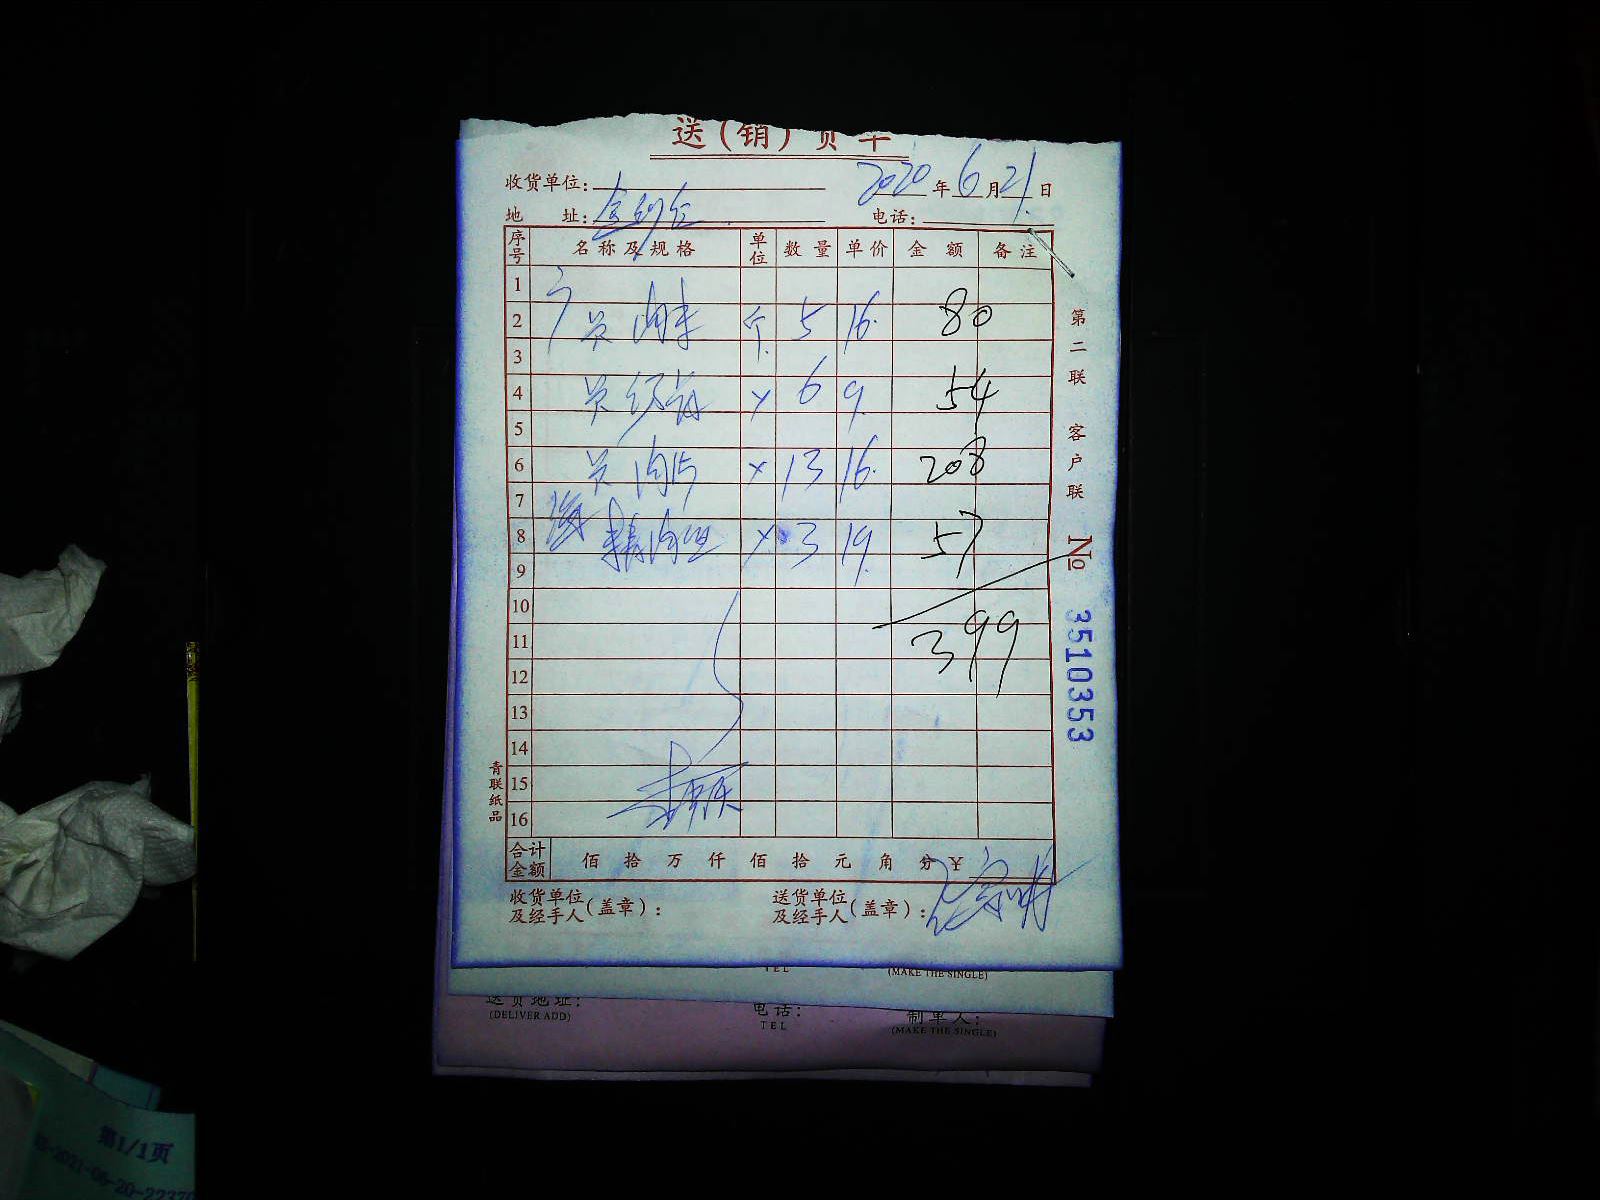 送(销)货单
收货单位: 2020年6月21日
地 址: 电话:
序号 名称及规格 单位 数量 单价 金额 备注
1
2 肉末 个 5 16. 80
3
4 6 9. 54
5
6 肉片 13 16. 208
7
8 精肉丝 3 19. 57
9
10
11 399
12
13
14
15
16
合计金额 佰 拾 万 仟 佰 拾 元 角 分 ¥
收货单位及经手人(盖章): 送货单位及经手人(盖章):
第二联 客户联
No 3510353
青联纸品
TEL (MAKE THE SINGLE)
送货地址: 电话: 制单人:
(DELIVER ADD) TEL (MAKE THE SINGLE)
第1/1页